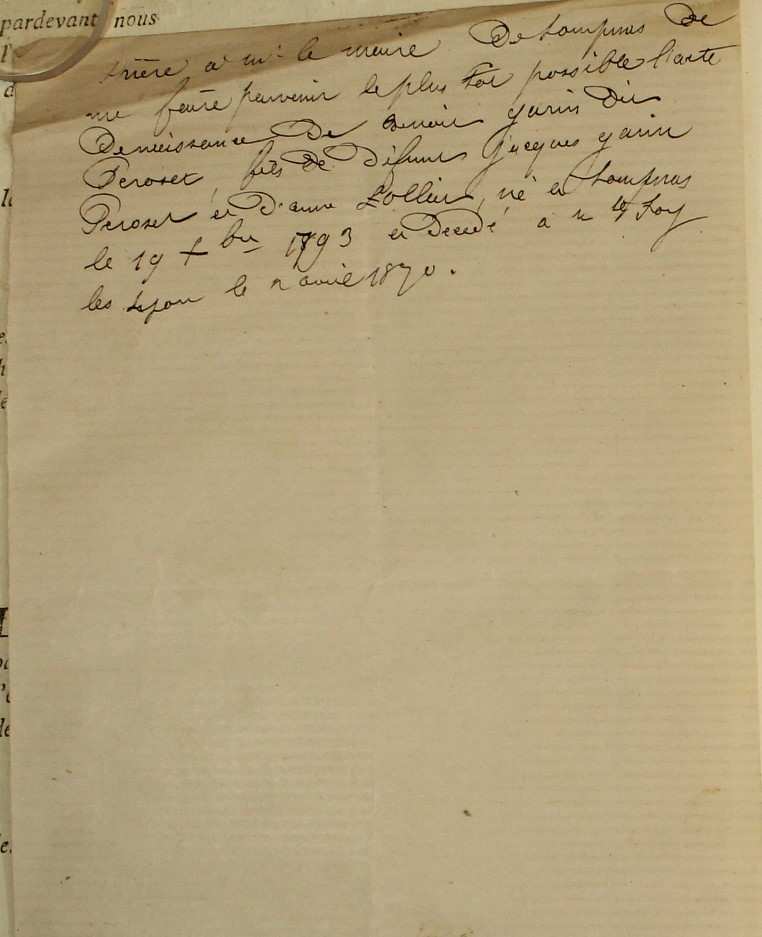 pardevant nous
prière à mr le maire De Lompnas De
me faire parvenir le plus tot possible l'acte
De naissance De Benoit garin Dit
Peroset, fils De Défunt Jacques garin
Peroset et D'anne Lollier, né a Lompnas
le 19 Xbre 1793 et Decedé a Ste foy
les Lyon le 2 avril 1870.